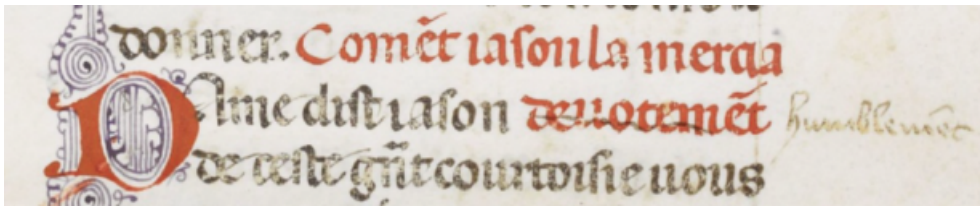 donner. Comẽt iason la mercia
Dame dist iason deuotemẽt humblemẽt
de ceste grãt courtoisie uous